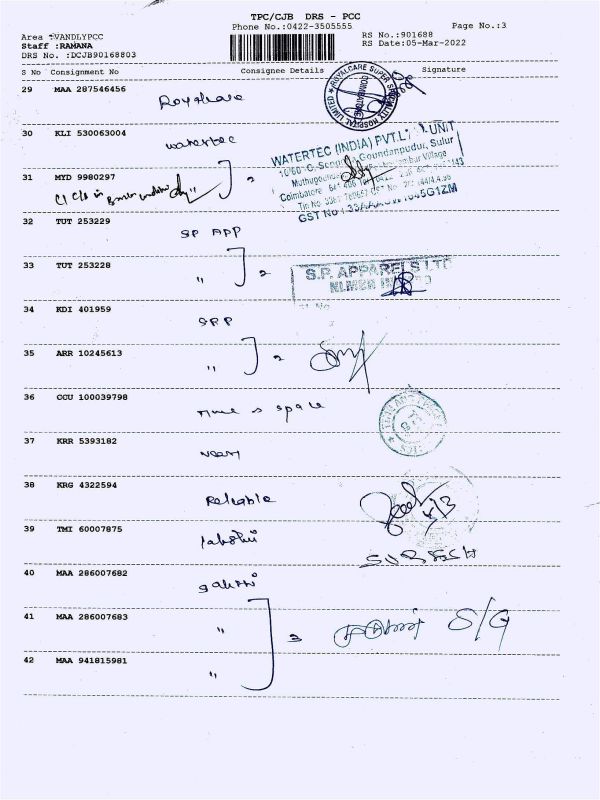 TPC/CJB DRS - PCC
Phone No.:0422-3505555
Page No.:3
Area :VANDLYPCC
RS No.:901688
Staff :RAMANA
RS Date:05-Mar-2022
DRS No. :DCJB90168803
S No Consignment No Consignee Details Signature
29 MAA 287546456
Royalcare
ROYALCARE SUPER SPECIALITY HOSPITAL LIMITED
COIMBATORE
30 KLI 530063004
watertec
WATERTEC (INDIA) PVT.LTD UNIT
31 MYD 9980297
" 2
Coimbatore
GST No
32 TUT 253229
SP APP
33 TUT 253228
" 2
S.P. APPARELS LTD
34 KDI 401959
SPP
35 ARR 10245613
" 2
36 CCU 100039798
Time & space
37 KRR 5393182
38 KRG 4322594
Reliable
39 TMI 60007875
SURESH
40 MAA 286007682
41 MAA 286007683
" 3
S/G
42 MAA 941815981
"